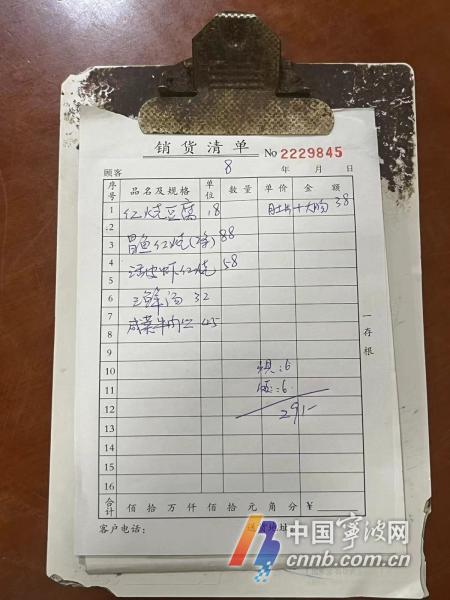 销货清单 No 2229845
顾客 8 年 月 日
序号 品名及规格 单位 数量 单价 金额
1 红烧豆腐 18 肚片+大肠 38
2
3 红烧 88
4
5 红烧 58
6 三鲜汤 32
7 咸菜牛肉 45
8
9
10 :6
11 :6
12 291-
13
14
15
16
合计 佰拾万仟佰拾元角分¥
客户电话: 送货地址
一存根
中国宁波网
cnnb.com.cn